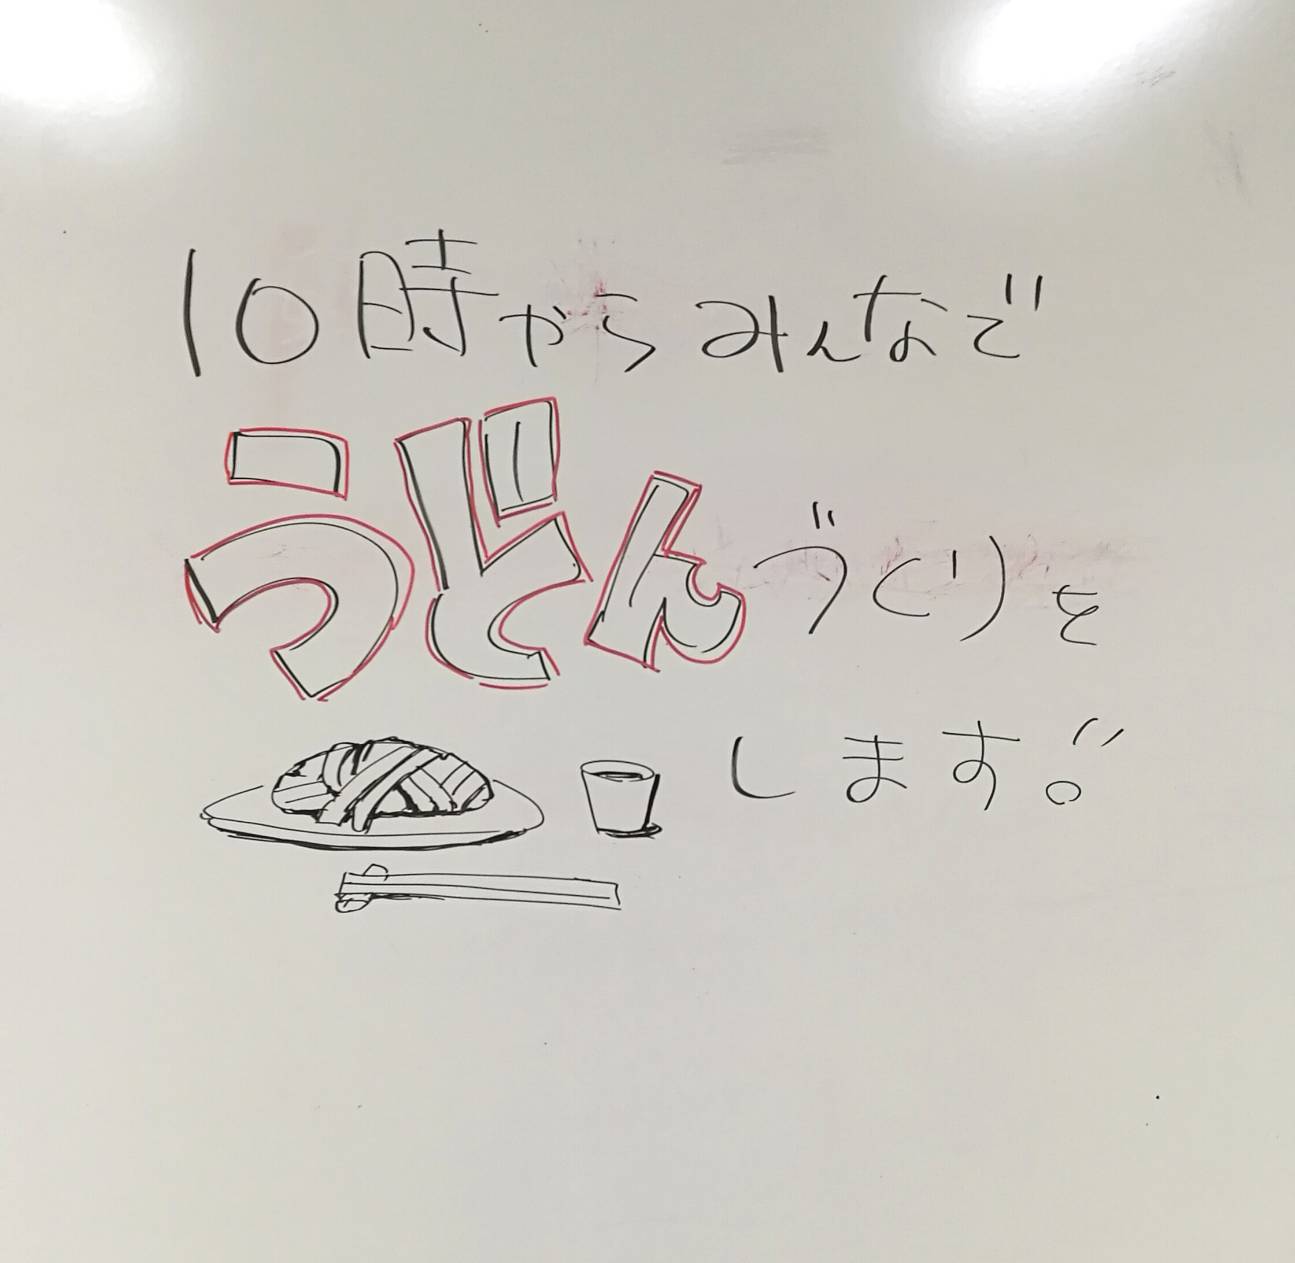 10時からみんなで
うどんづくりを
します。